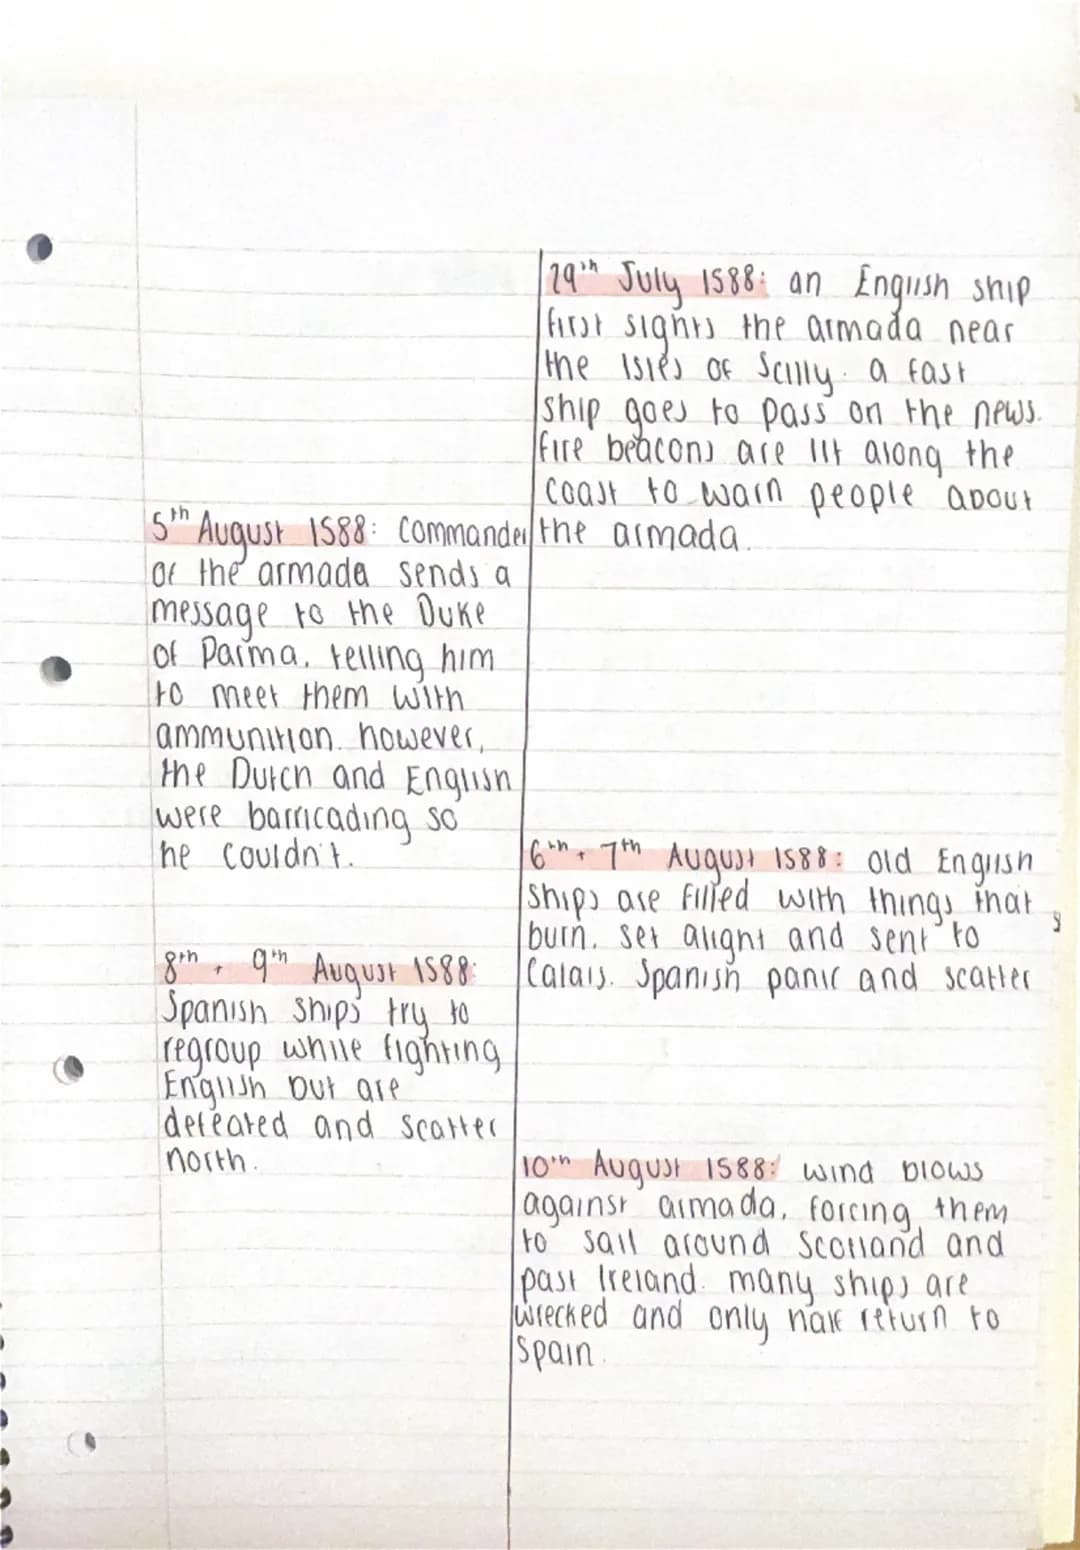 29th July 1588: an English ship
first sights the armada near
the Isles of Scilly. a fast
ship goes to pass on the news.
fire beacons are lit along the
coast to warn people about
the armada.
5th August 1588: Commander
of the armada sends a
message to the Duke
of Parma, telling him
to meet them with
ammunition. however,
the Dutch and English
were barricading so
he couldn't.
6th + 7th August 1588: old English
ships are filled with things that
burn, set alight and sent to
Calais. Spanish panic and scatter
8th + 9th August 1588:
Spanish ships try to
regroup while fighting
English but are
defeated and scatter
north.
10th August 1588: wind blows
against armada, forcing them
to sail around Scotland and
past Ireland. many ships are
wrecked and only half return to
Spain.